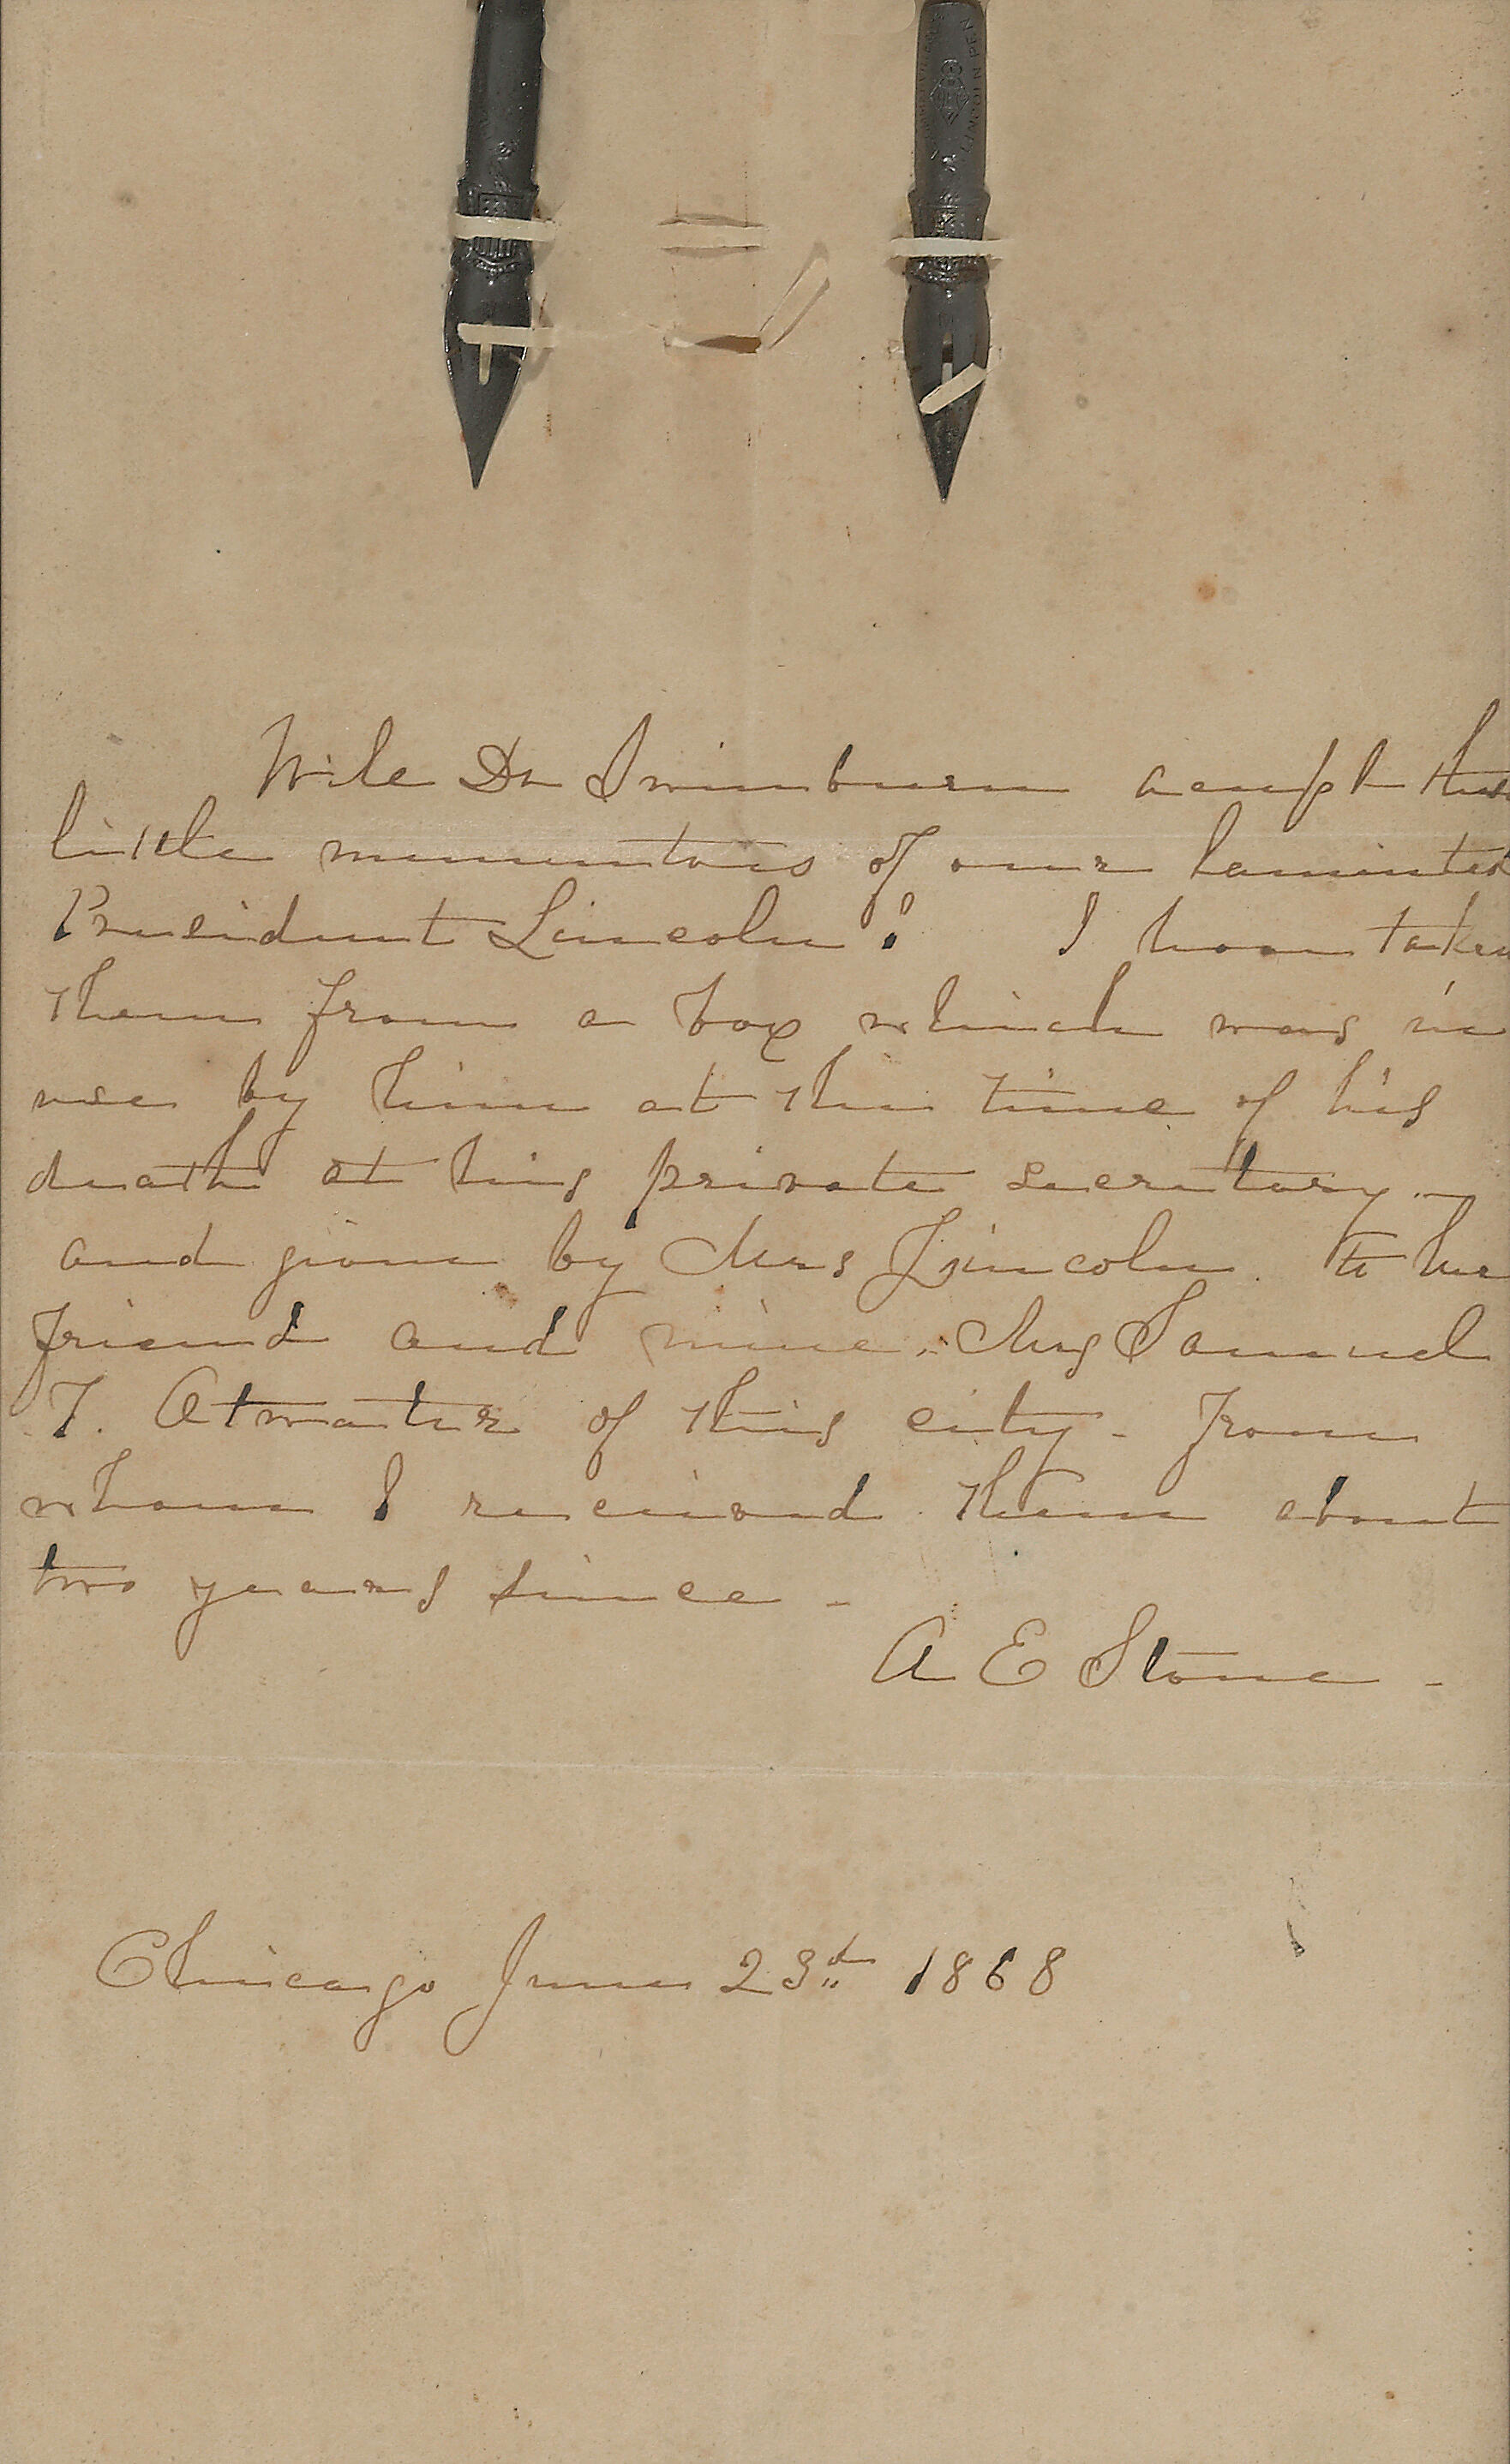 UNION PEN
Will Dr Swinburn accept these
little mementoes of our lamented
President Lincoln? I have taken
them from a box which was in
use by him at the time of his
death at his private secretary -
and given by Mrs Lincoln. to her
friend and mine. Mrs Samuel
T. Atwater of this city - From
whom I received them about
two years since -
A E Stone -
Chicago June 23d 1868